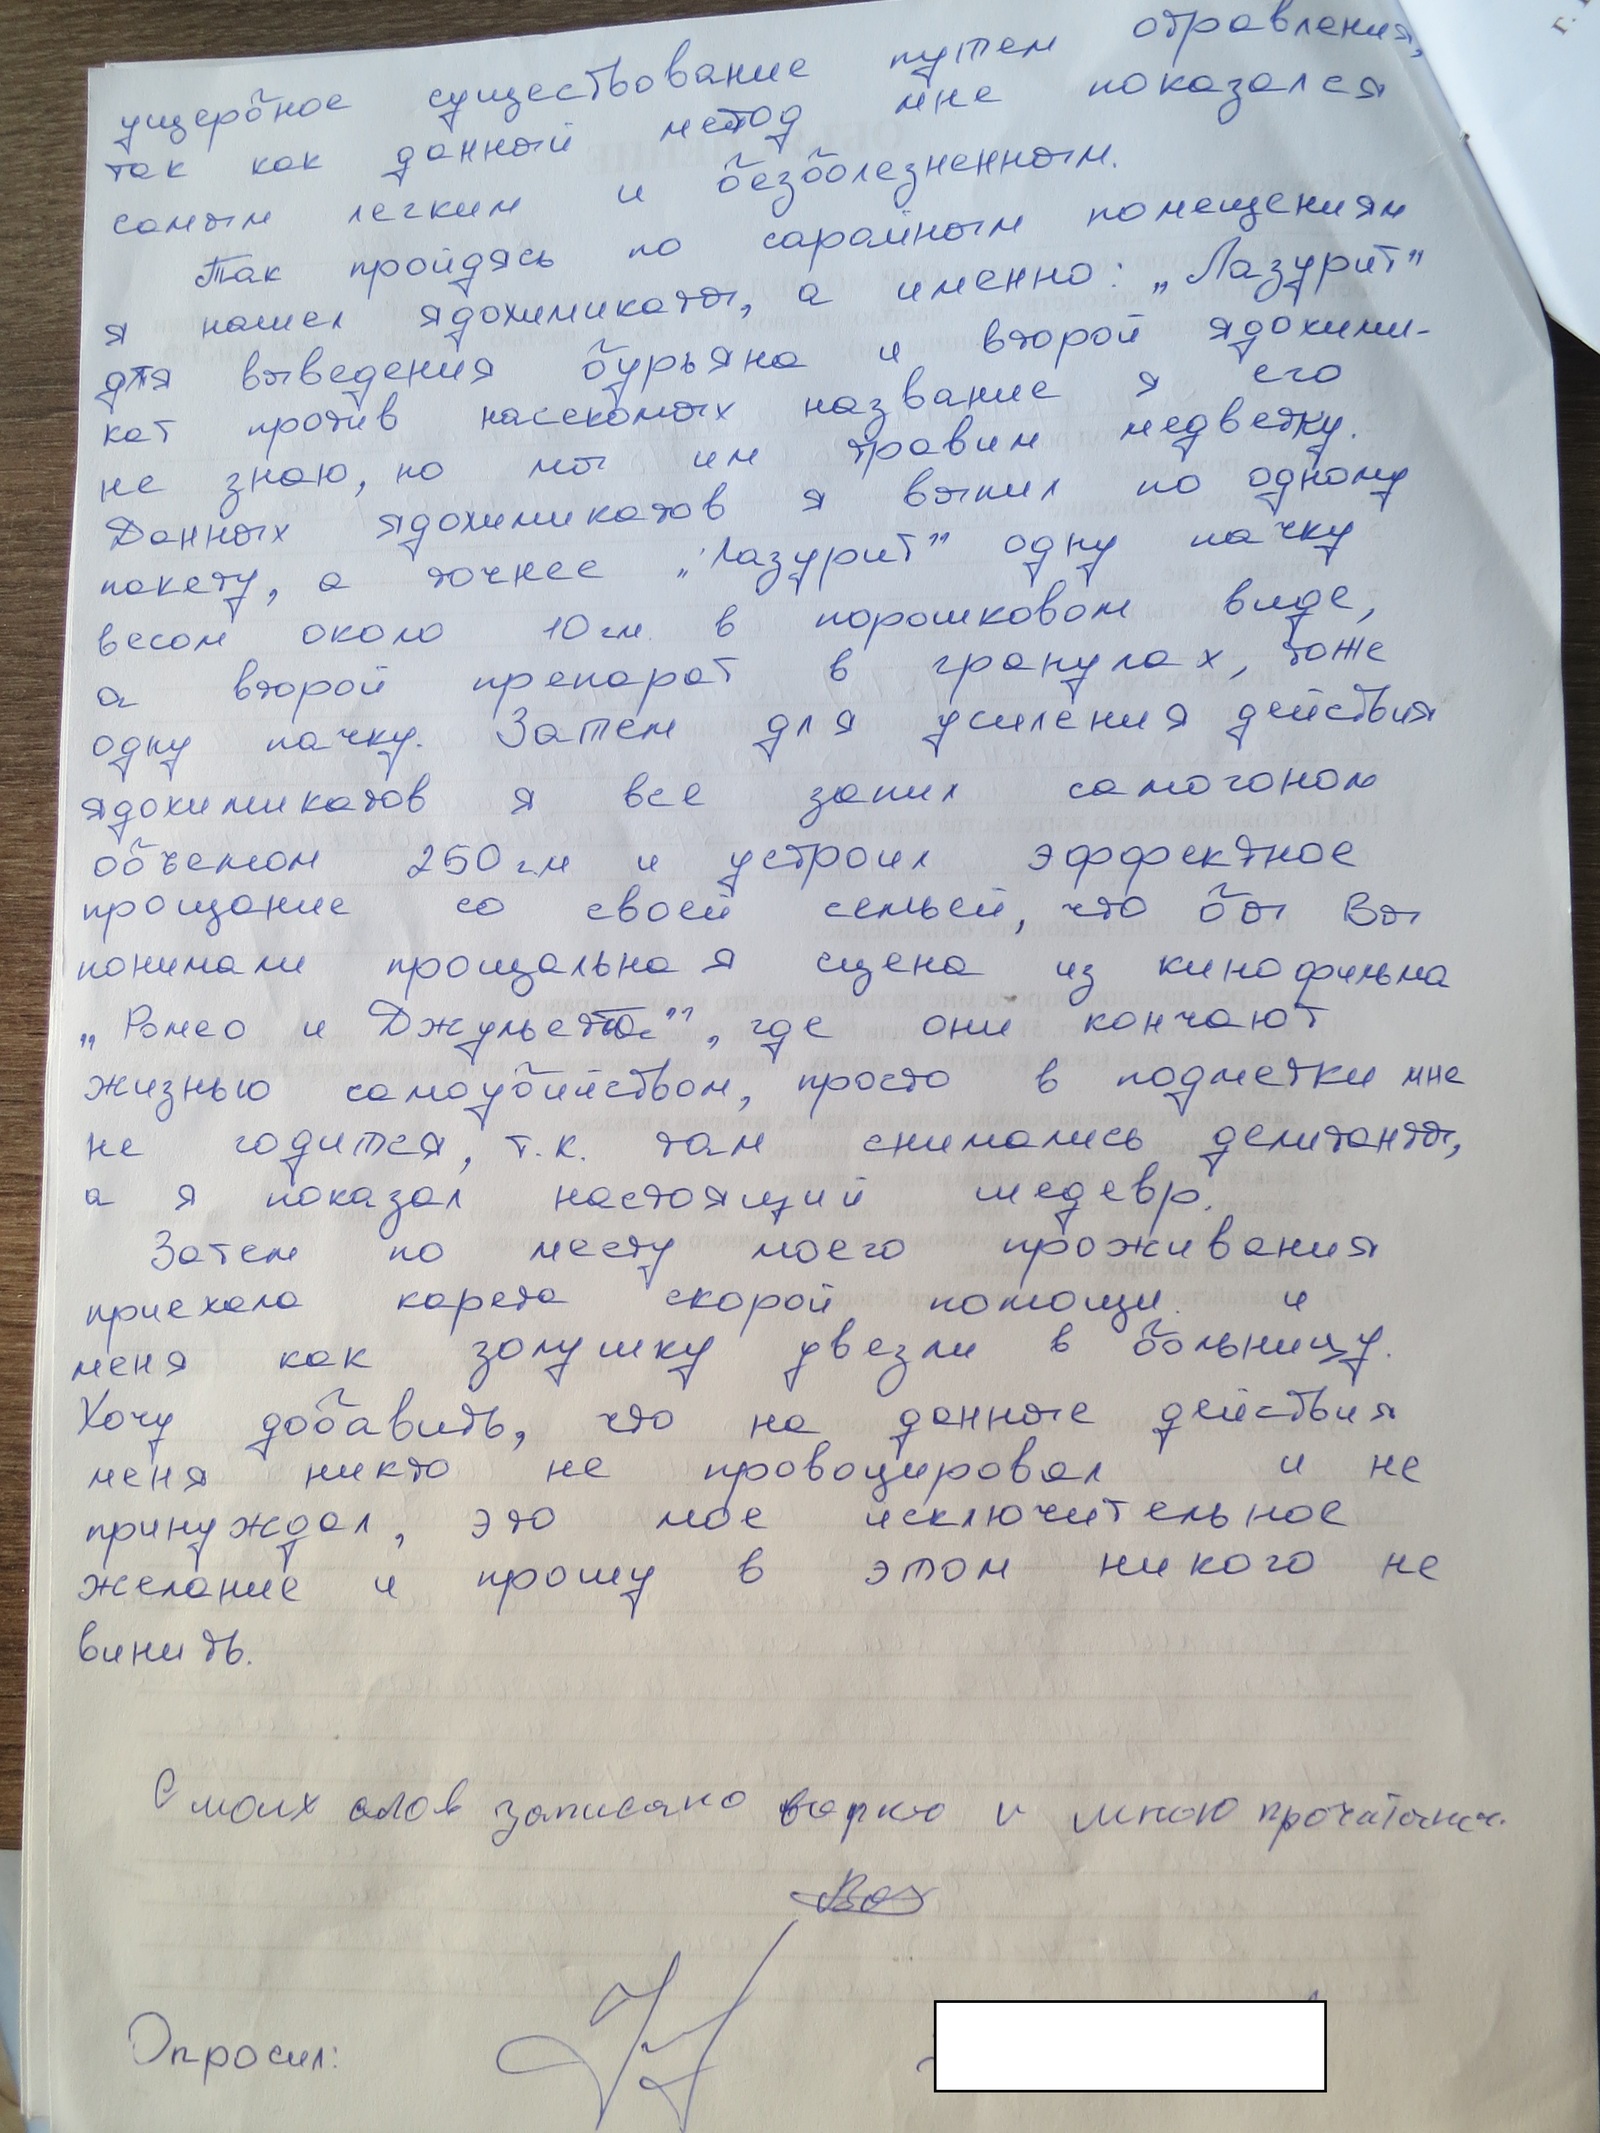 ущербное существование путем отравления,
так как данный метод мне показался
самым легким и безболезненным.
Так пройдясь по сарайным помещениям
я нашел ядохимикаты, а именно: „Лазурит"
для выведения бурьяна и второй ядохими-
кат против насекомых название я его
не знаю, но мы им травим медветку.
Данных ядохимикатов я выпил по одному
пакету, а точнее „Лазурит" одну пачку
весом около 10 гм. в порошковом виде,
а второй препарат в гранулах, тоже
одну пачку. Затем для усиления действия
ядохимикатов я все запил самогоном
объемом 250 гм и устроил эффектное
прощание со своей семьей, что бы Вы
понимали прощальная сцена из кинофильма
„Ромео и Джульетта", где они кончают
жизнью самоубийством, просто в подметки мне
не годится, т.к. там снимались делитанты,
а я показал настоящий шедевр.
Затем по месту моего проживания
приехала карета скорой помощи и
меня как золушку увезли в больницу.
Хочу добавить, что на данные действия
меня никто не провоцировал и не
принуждал, это мое исключительное
желание и прошу в этом никого не
винить.
С моих слов записано верно и мною прочитано.
Опросил: